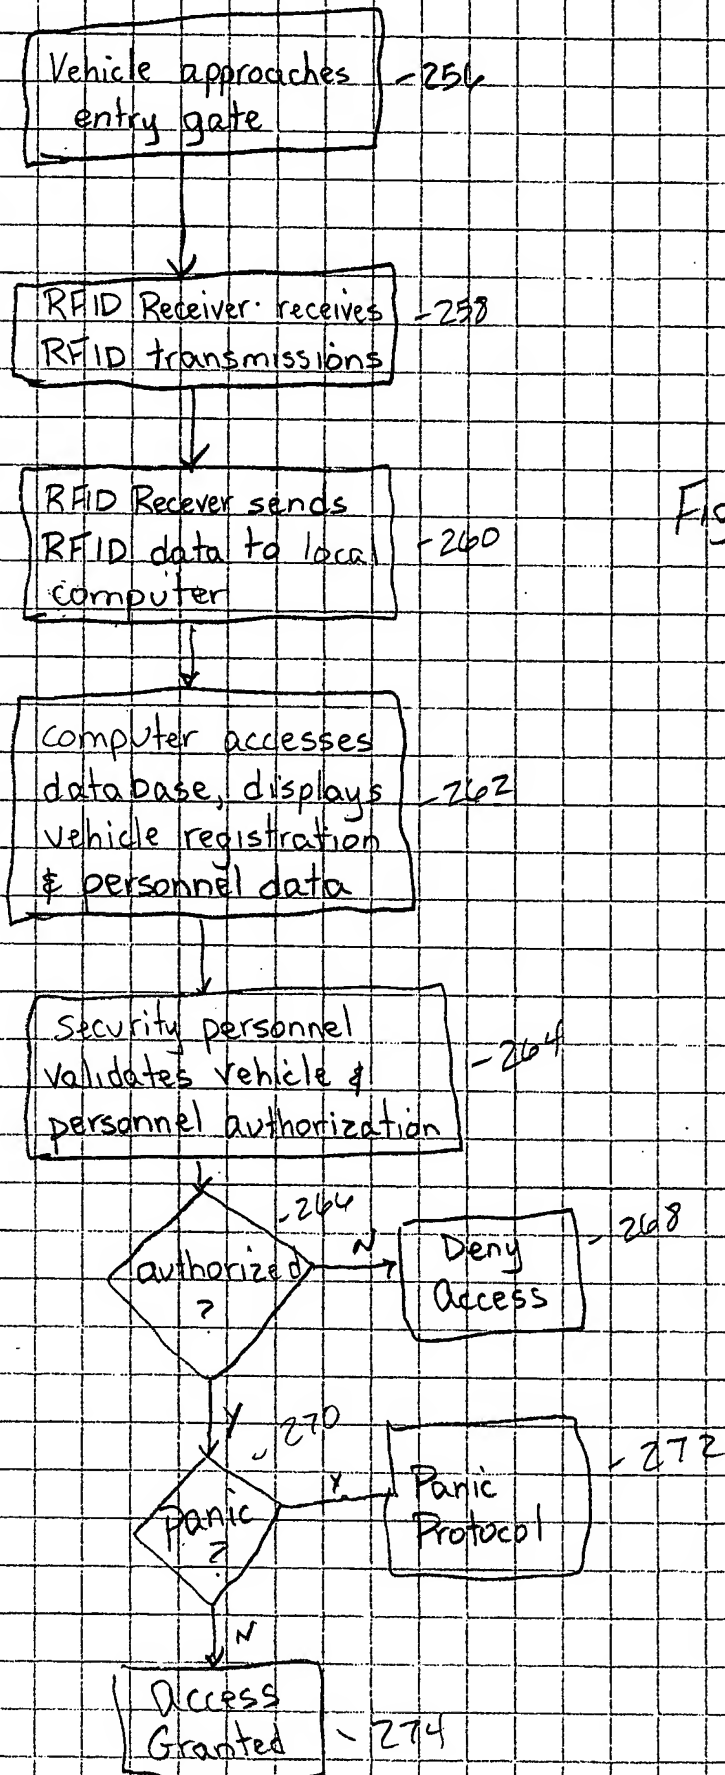 Vehicle approaches
entry gate
-256
RFID Receiver receives
RFID transmissions
-258
RFID Recever sends
RFID data to local
computer
-260
Fig
computer accesses
database, displays
vehicle registration
& personnel data
-262
Security personnel
validates vehicle &
personnel authorization
-264
-266
authorized
?
N
Deny
Access
-268
Y
270
Panic
?
Y
Panic
Protocol
-272
N
Access
Granted
-274